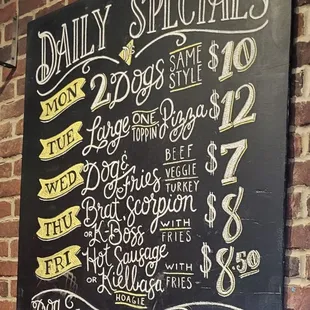 DAILY SPECIALS
MON 2 Dogs SAME STYLE $10
TUE Large ONE TOPPIN' Pizza $12
WED Dog & Fries BEEF VEGGIE TURKEY $7
THU Brat, Scorpion OR K-Boss WITH FRIES $8
FRI Hot Sausage OR Kielbasa HOAGIE WITH FRIES $8.50